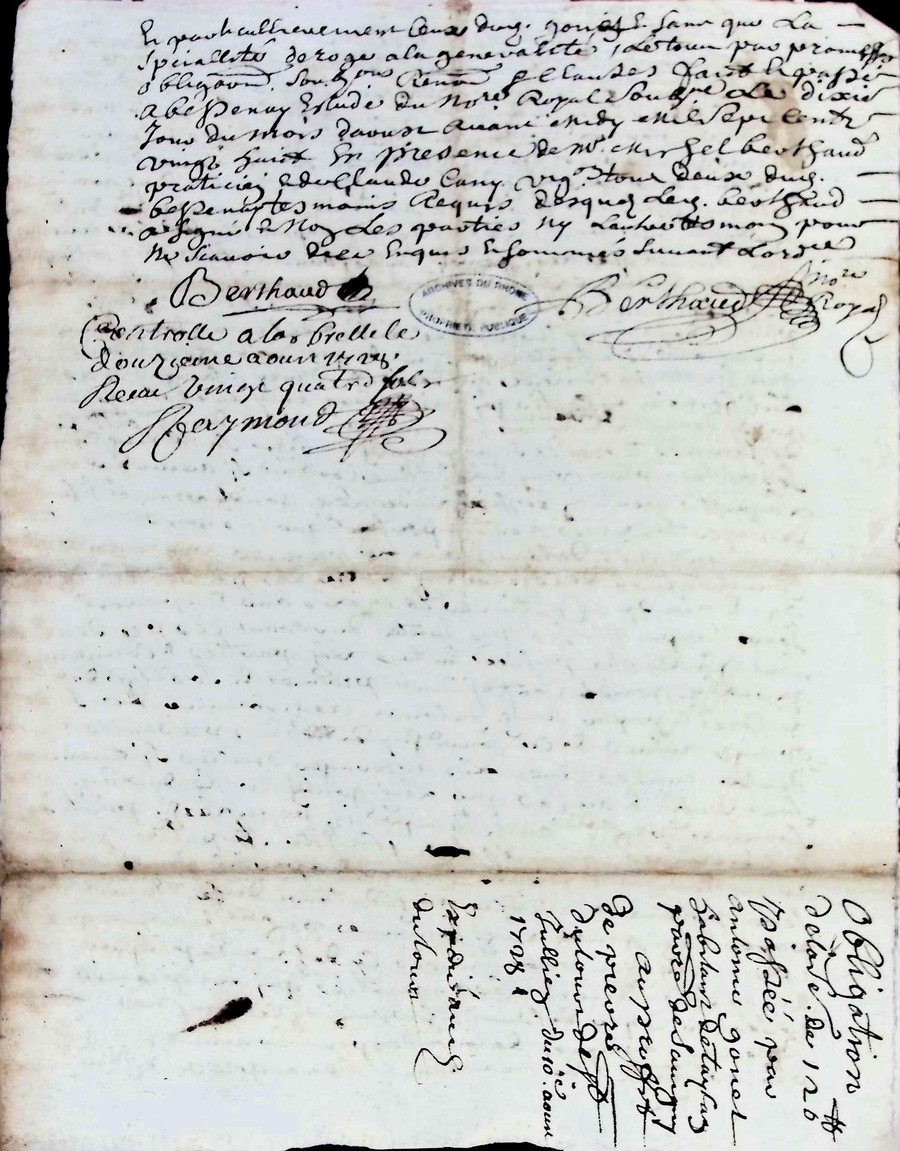 Et particulierement ceux dud. gonet Et sans que La
specialitté deroge a la generalitté, Le tout par promesses
obligaōn Renōn Et Clauses faict Et passé
a bessenay Estude du No.re Royal Soub.né Le dixie
Jour du mois daoust avant midy mil sept centz
vingt huict En presence de m.e michel berthaud
praticien Et de Claude Cany vig.on tous deux dud.
bessenay tesmoins Requis desquelz Led. berthaud
a signé Non Les parties ny Lautre tesmoin pour
ne scavoir de ce Enquis Et sommés suivant Lordre
Berthaud
Berthaud no.re Royal
ARCHIVES DU RHONE
PROPRIÉTÉ PUBLIQUE
Controllé a la brelle le
douzieme aoust 1728.
Receu vingt quatre sols
Reymond
Obligation
de lad. de 126 ₶
passée par
antoine gonet
habitant de
parr.e de
au proffit
de pierre
dutour de St
Jullien du 10.e aoust
1728
Expedié aud.
dutour